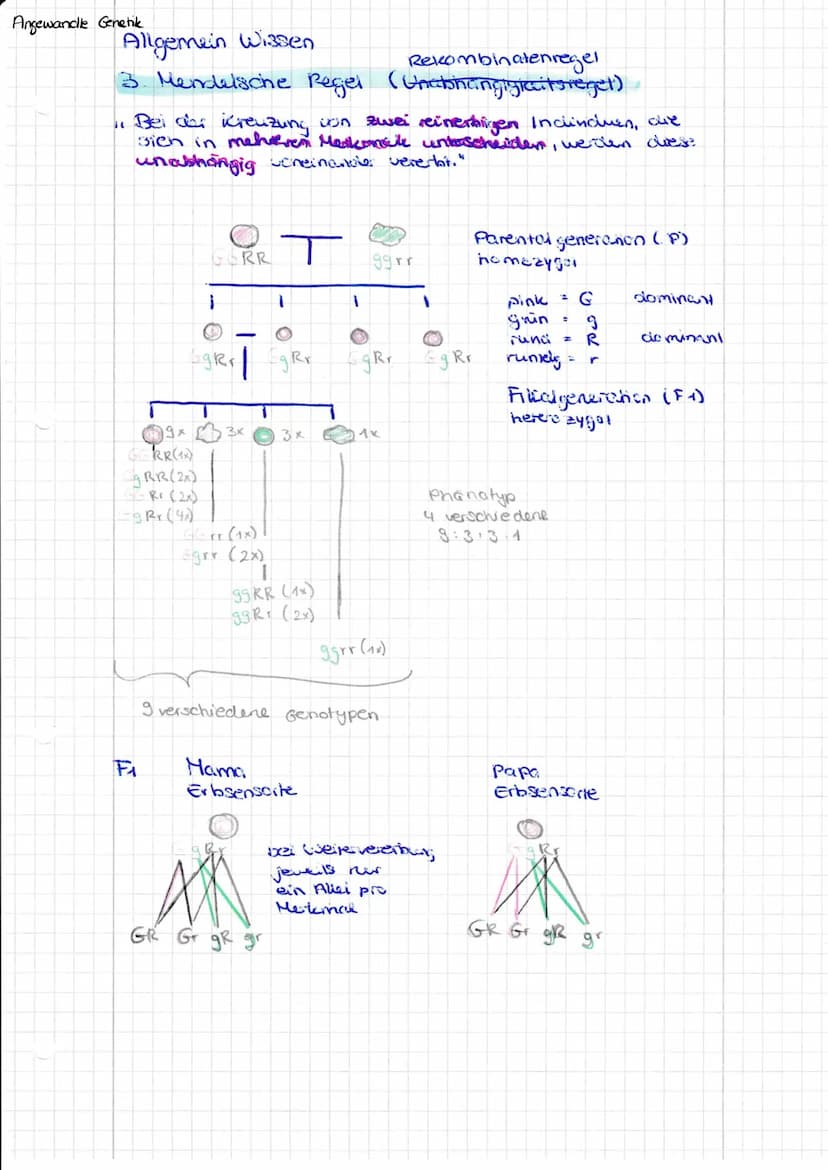 Angewandte Genetik
Allgemein Wissen
Rekombinatenregel
3. Mendelsche Regel (Unabhängigkeitsregel)
„Bei der Kreuzung von zwei reinerbigen Individuen, die
sich in mehreren Merkmale unterscheiden, werden diese
unabhängig voneinander vererbt."
GGRR
ggrr
Parental generation (P)
homozygot
pink = G dominant
grün = g
rund = R dominant
runzelig = r
GgRr GgRr GgRr GgRr
Filialgeneration (F1)
heterozygot
9x 3x 3x 1x
GGRR(1x)
GgRR(2x)
GGRr (2x)
GgRr(4x)
GGrr (1x)
Ggrr (2x)
ggRR (1x)
ggRr (2x)
ggrr(1x)
Phänotyp
4 verschiedene
9:3:3:1
9 verschiedene Genotypen
F1 Mama
Erbsensorte
Papa
Erbsensorte
GgRr
GgRr
bei Weitervererbung
jeweils nur
ein Allel pro
Merkmal
GR Gr gR gr
GR Gr gR gr